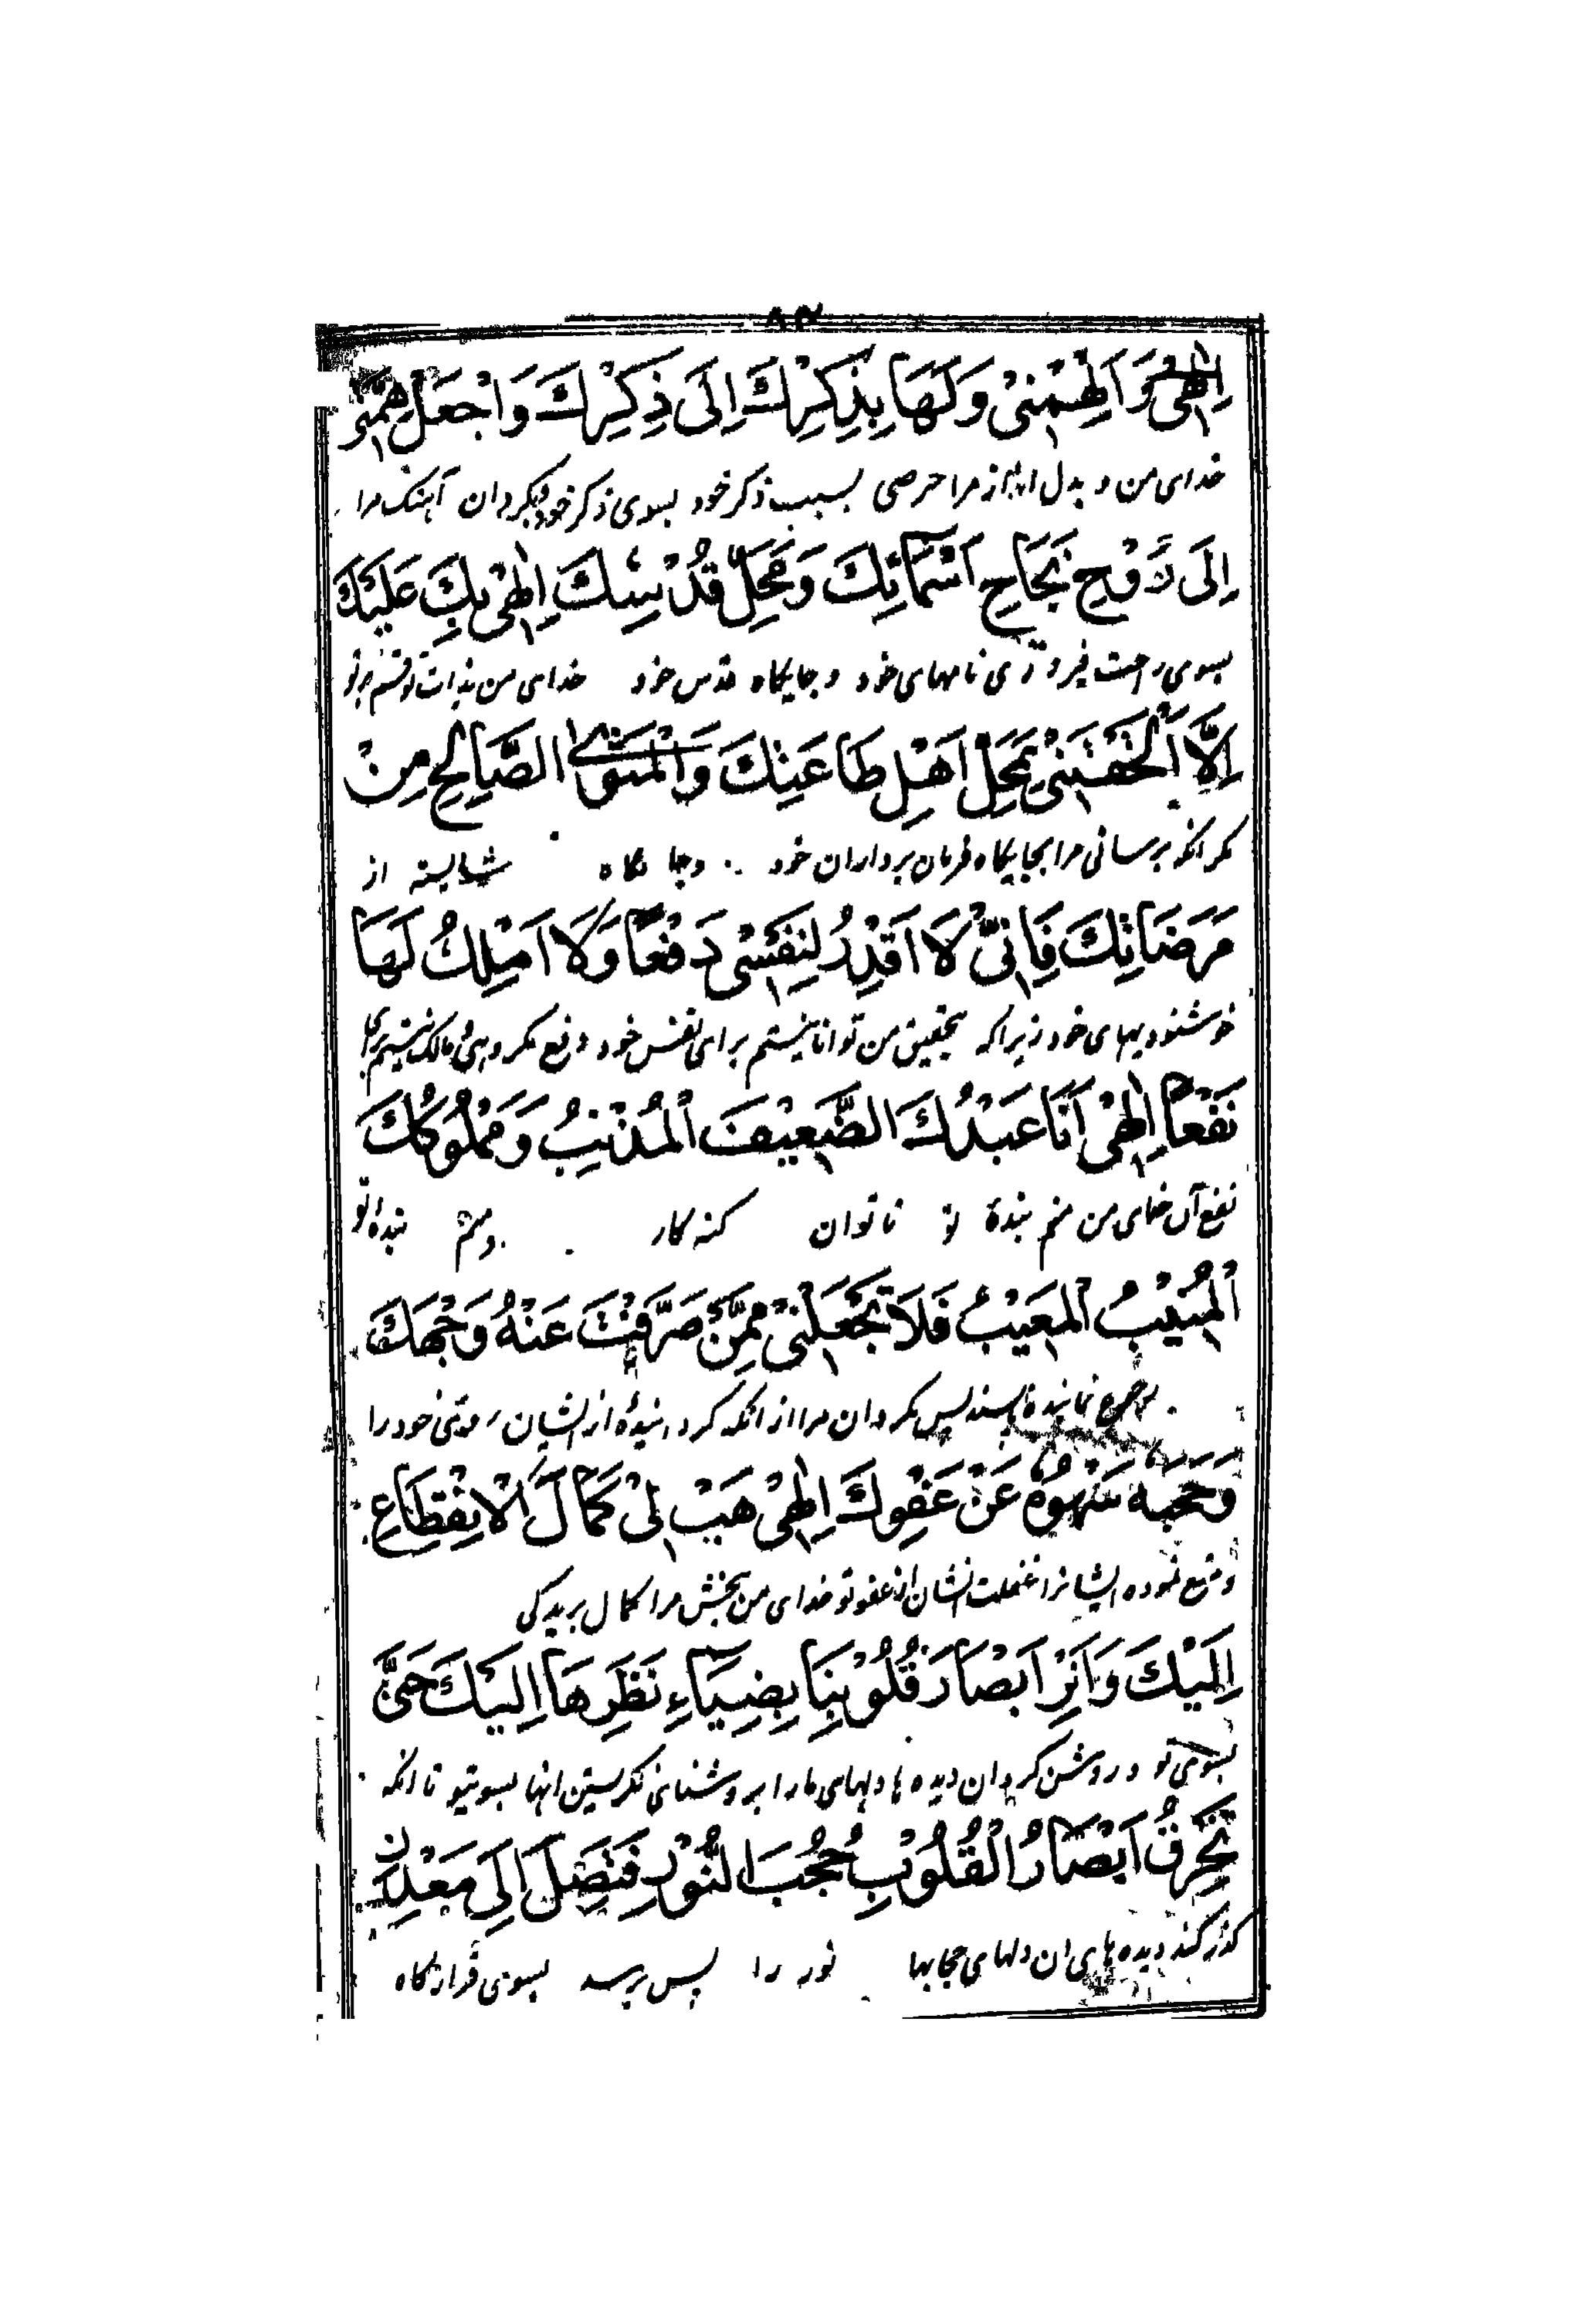 اِلٰهِیْ وَاَلْهِمْنِیْ وَلَهًا بِذِكْرِكَ اِلَی ذِكْرِكَ وَاجْعَلْ هِمَّتِیْ
خدای من و بدل انداز مرا حرصی بسبب ذکر خود بسوی ذکر خود و بگردان آهنک مرا
اِلَی رَوْحِ نَجَاحِ اَسْمَائِكَ وَمَحَلِّ قُدْسِكَ اِلٰهِیْ بِكَ عَلَیْكَ
بسوی راحت فیروزی نامهای خود و جایگاه قدس خود خدای من بذات تو قسم بر تو
اِلَّا اَلْحَقْتَنِیْ بِمَحَلِّ اَهْلِ طَاعَتِكَ وَالْمَثْوَی الصَّالِحِ مِنْ
مکر انکه برسانی مرا بجایگاه فرمان برداران خود وجا نگاه شایسته از
مَرَضَاتِكَ فَاِنِّیْ لَا اَقْدِرُ لِنَفْسِیْ دَفْعًا وَلَا اَمْلِكُ لَهَا
خوشنودیهای خود زیراکه بتحقیق من توانا نیستم برای نفس خود دفع مکروهی و مالک نیستم برای
نَفْعًا اِلٰهِیْ اَنَا عَبْدُكَ الضَّعِیْفَ الْمُذْنِبُ وَمَمْلُوْكُكَ
نفع آن خدای من منم بندۀ تو ناتوان کنه کار ومنم بندۀ تو
الْمُنِیْبُ الْمَعِیْبُ فَلَا تَجْعَلْنِیْ مِمَّنْ صَرَّفْتَ عَنْهُ وَجْهَكَ
رجوع نمایندۀ پس مکردان مرا از انکه کردانیدۀ از ایشان روی خود را
وَحَجَبَهُ سَهْوُهُ عَنْ عَفْوِكَ اِلٰهِیْ هَبْ لِیْ كَمَالَ الْاِنْقِطَاعِ
و منع نموده ایشانرا غفلت ایشان از عفو تو خدای من بخش مرا کمال بریدکی
اِلَیْكَ وَاَنِرْ اَبْصَارَ قُلُوْبِنَا بِضِیَاءِ نَظَرِهَا اِلَیْكَ حَتَّی
بسوی تو و روشن کردان دیده ها دلهای ما را بروشنائی نکریستن انها بسویتو تا انکه
تَخْرِقَ اَبْصَارُ الْقُلُوْبِ حُجُبَ النُّوْرِ فَتَصِلَ اِلَی مَعْدِنِ
گذر کند دیده های ان دلهای حجابها نور را پس برسد بسوی قرارگاه